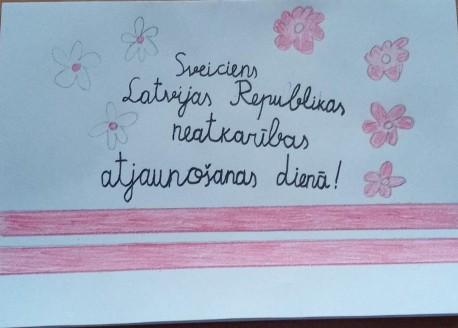 Sveiciens
Latvijas Republikas
neatkarības
atjaunošanas dienā!